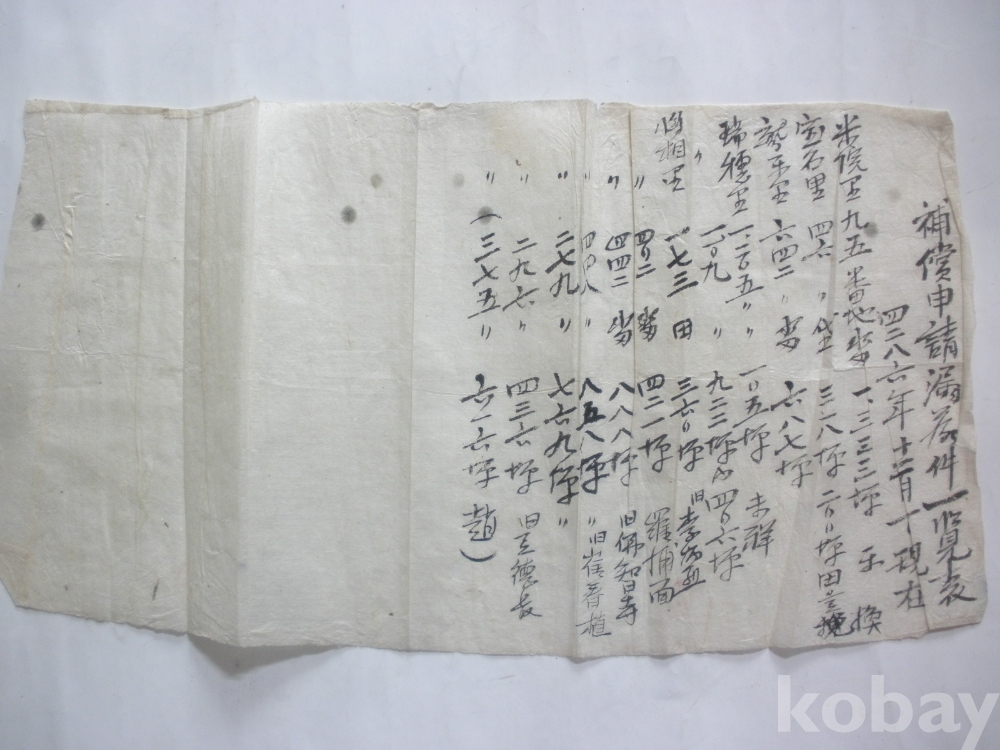 補償申請漏落件一覽表
四二八六年十二月十日現在
米院里 九五番地 畓 一、三三三坪 不換
宝石里 四六 〃 垈 三一八坪 二六〇坪田 換
六四二 〃 畓 六八七坪
瑞穗里 一二〇五 〃 〃 一〇五坪 未詳
〃 一〇九 〃 九二三坪 四〇六坪
相里 一七三 田 三六〇坪 旧李
〃 四〇二 畓 四二一坪 羅捕面
〃 四四二 畓 八八八坪 旧佛智寺
〃 四四八 〃 八五八坪 〃 旧崔春植
〃 二七九 〃 七六九坪 〃
〃 二九七 〃 四三六坪 旧 德
〃 (三七五 〃 六一六坪 趙)
kobay